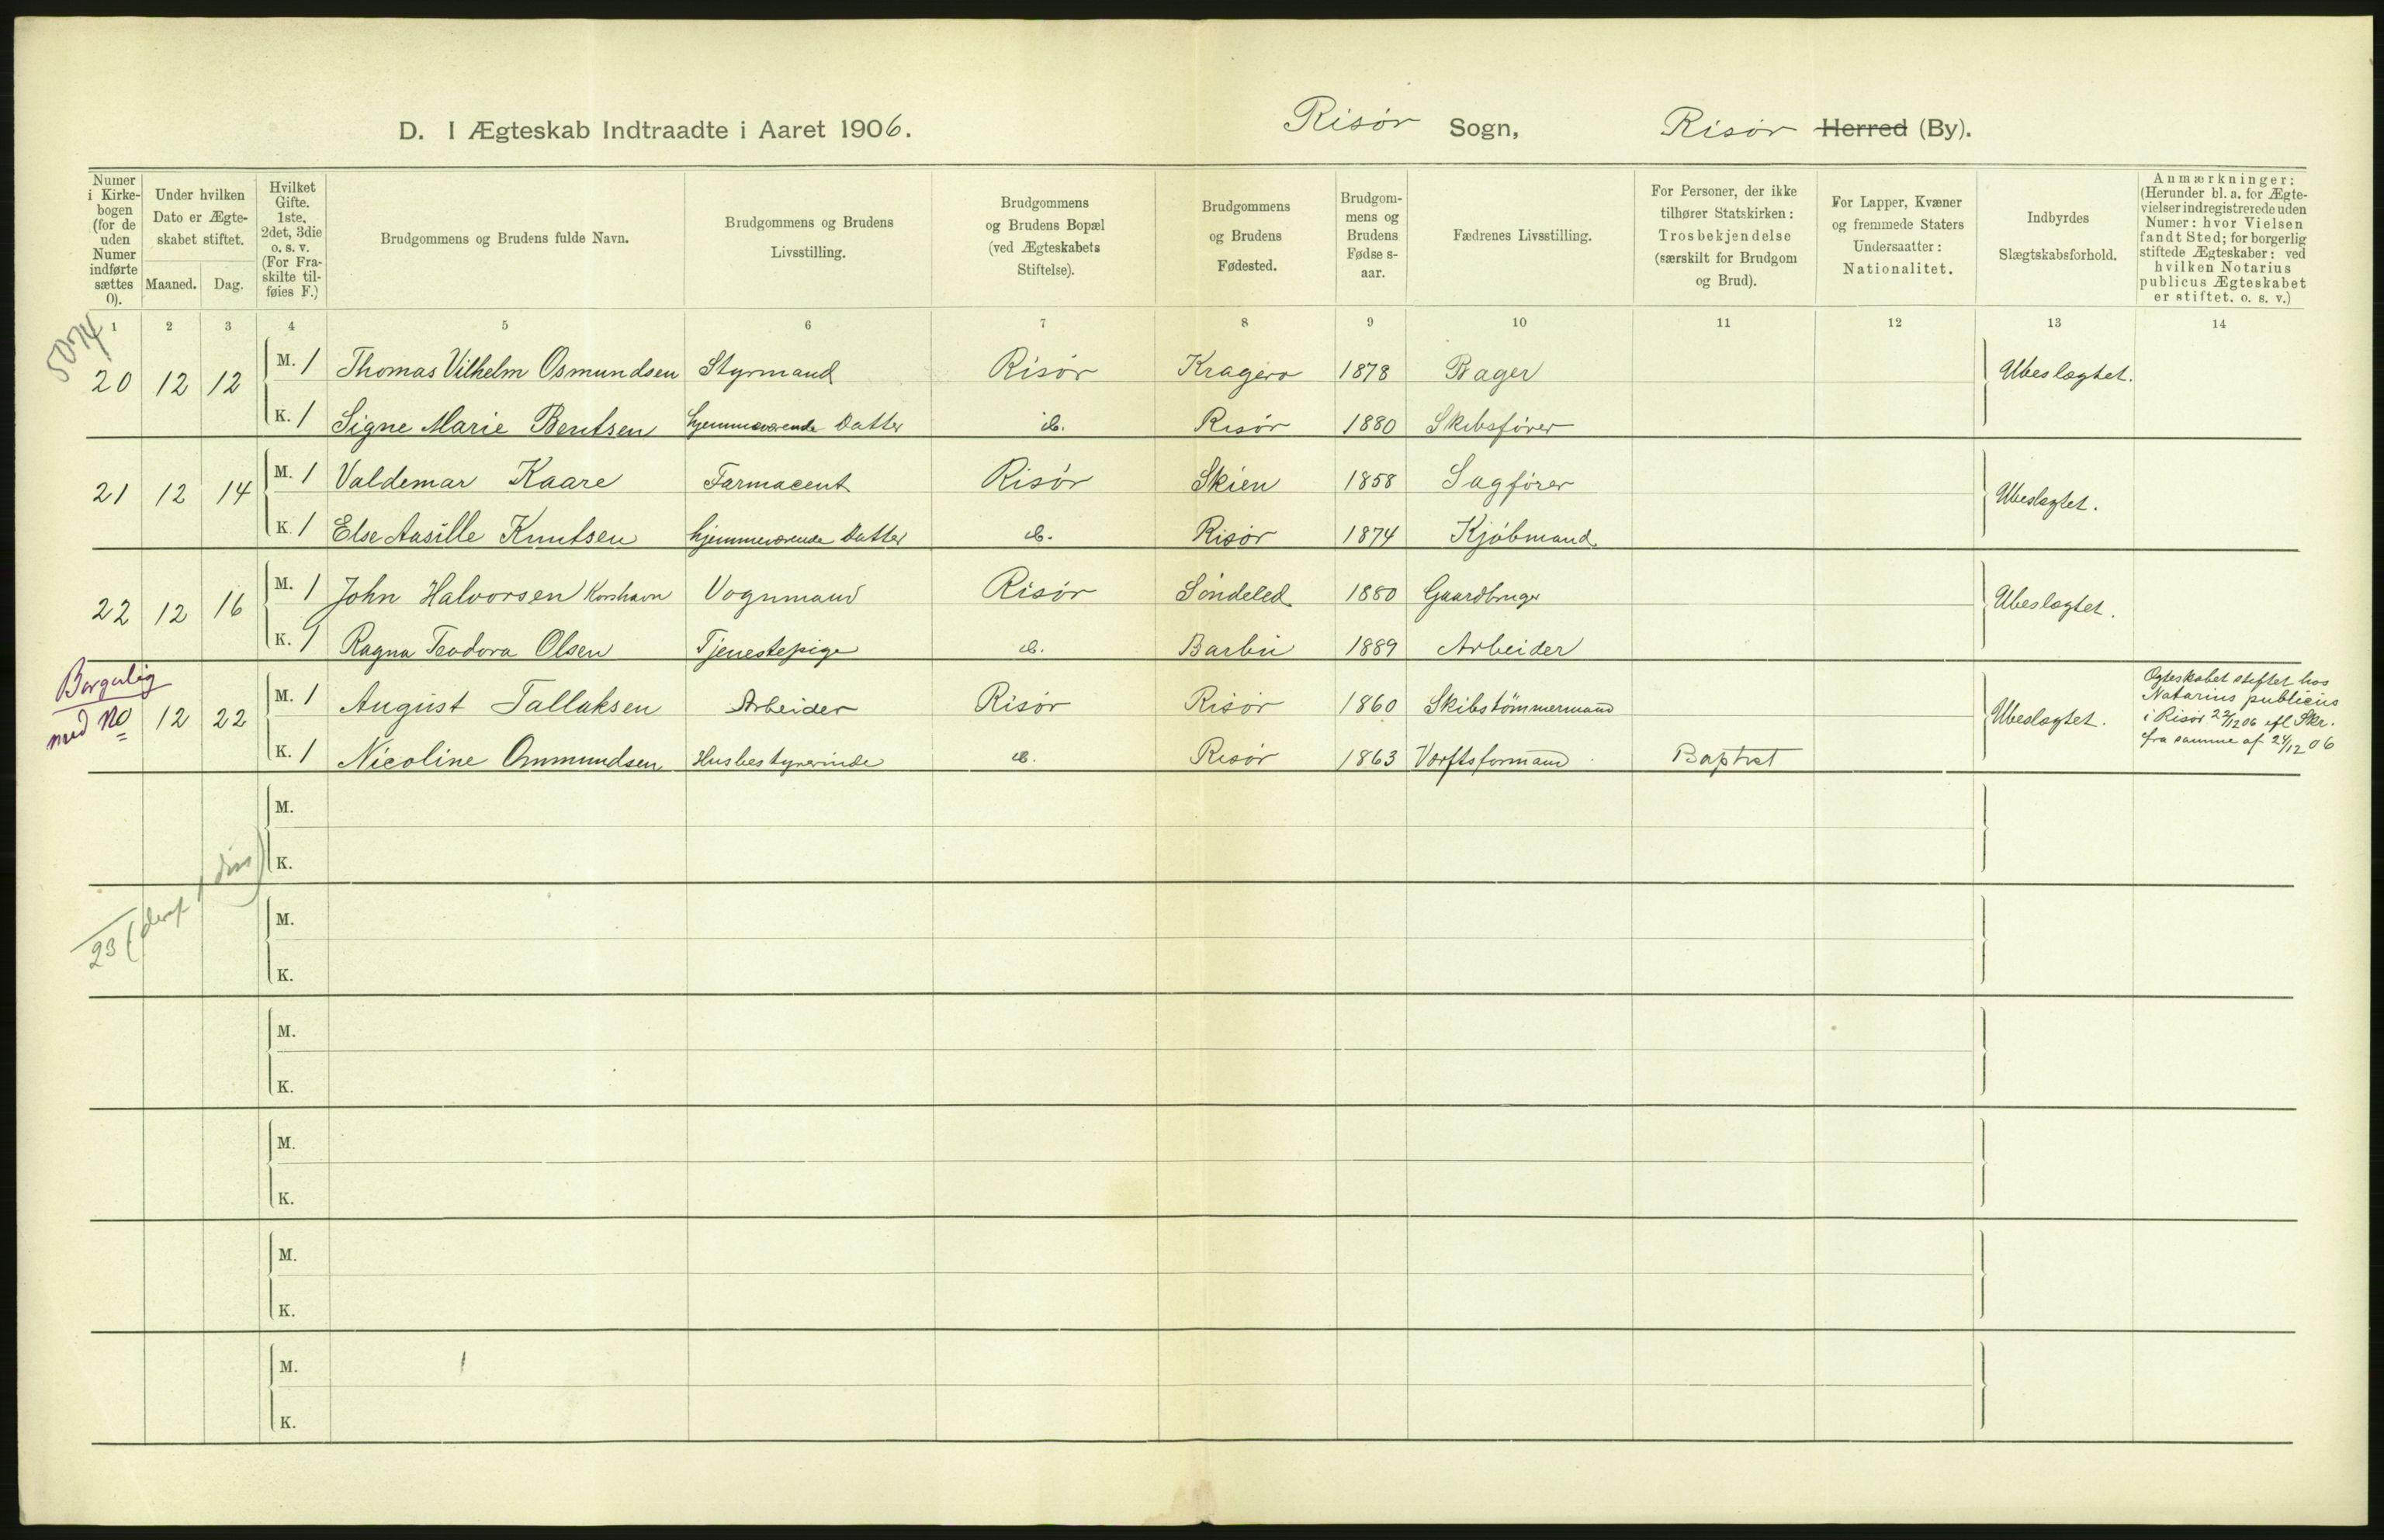 D. I Ægteskab Indtraadte i Aaret 1906. Risør Sogn, Risør Herred (By).
Numer i Kirke-bogen (for de uden Numer indførte sættes 0).
Under hvilken Dato er Ægte-skabet stiftet.
Maaned. Dag.
Hvilket Gifte. 1ste, 2det, 3die o. s. v. (For Fra-skilte til-føies F.)
Brudgommens og Brudens fulde Navn.
Brudgommens og Brudens Livsstilling.
Brudgommens og Brudens Bopæl (ved Ægteskabets Stiftelse).
Brudgommens og Brudens Fødested.
Brudgom-mens og Brudens Fødse s-aar.
Fædrenes Livsstilling.
For Personer, der ikke tilhører Statskirken: Trosbekjendelse (særskilt for Brudgom og Brud).
For Lapper, Kvæner og fremmede Staters Undersaatter: Nationalitet.
Indbyrdes Slægtskabsforhold.
Anmærkninger: (Herunder bl. a. for Ægte-vielser indregistrerede uden Numer: hvor Vielsen fandt Sted; for borgerlig stiftede Ægteskaber: ved hvilken Notarius publicus Ægteskabet er stiftet. o. s. v.)
1 2 3 4 5 6 7 8 9 10 11 12 13 14
5074
20 12 12 M. 1 Thomas Vilhelm Osmundsen Styrmand Risør Kragerø 1878 Bager Ubeslægtet.
K. 1 Signe Marie Bentsen hjemmeværende Datter ib. Risør 1880 Skibsfører
21 12 14 M. 1 Valdemar Kaare Farmaceut Risør Skien 1858 Sagfører Ubeslægtet.
K 1 Else Aasille Knutsen hjemmeværende Datter ib. Risør 1874 Kjøbmand
22 12 16 M. 1 John Halvorsen Korshavn Vognmand Risør Søndeled 1880 Gaardbruger Ubeslægtet.
K. 1 Ragna Teodora Olsen Tjenestepige ib. Barbu 1889 Arbeider
Borgerlig
med No 12 22 M. 1 August Tallaksen Arbeider Risør Risør 1860 Skibstømmermand Ubeslægtet.
K. 1 Nicoline Ommundsen Husbestyrerinde ib. Risør 1863 Værftsformand Baptist
Ægteskabet stiftet hos
Notarius publicus
i Risør 22/12 06 efl Skr.
fra samme af 24/12 06
M.
K.
23 (deraf 1 diss)
M.
K.
M.
K.
M.
K.
M.
K.
M.
K.